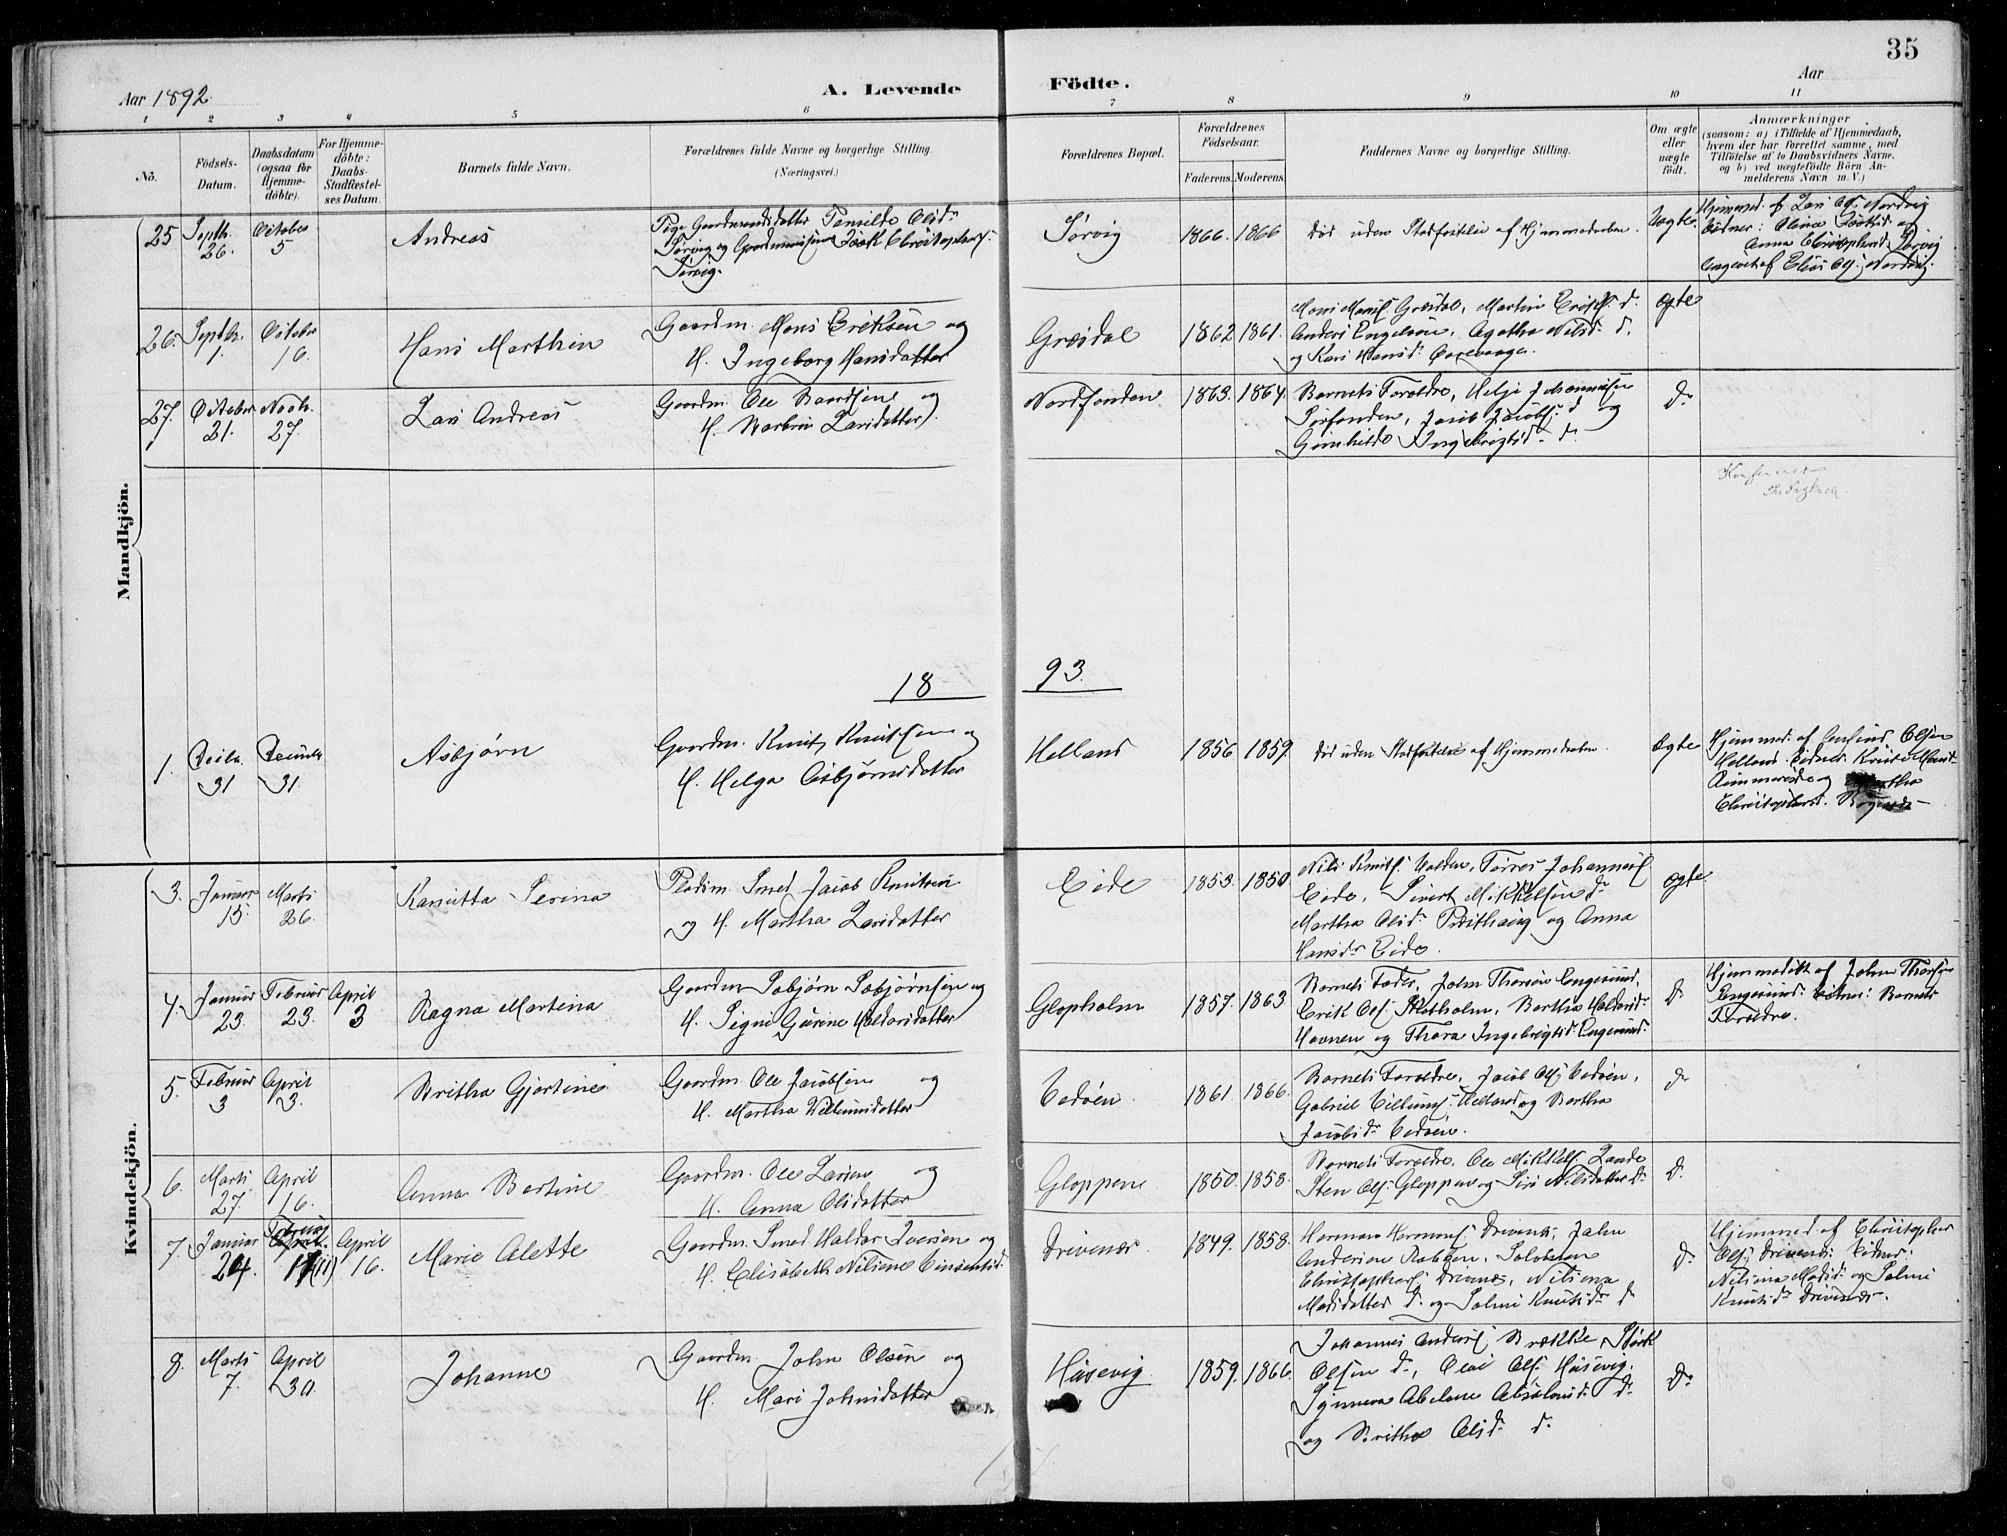 35
Aar 1892.
A. Levende
Födte.
Aar
1 2 3 4 5 6 7 8 9 10 11
No.
Födsels-
Datum.
Daabsdatum
(ogsaa for
Hjemme-
döbte).
For Hjemme-
döbte:
Daabs-
Stadfæstel-
ses Datum.
Barnets fulde Navn.
Forældrenes fulde Navne og borgerlige Stilling.
(Næringsvei.)
Forældrenes Bopæl.
Forældrenes
Födselsaar.
Faderens. Moderens.
Faddernes Navne og borgerlige Stilling.
Om ægte
eller
uægte
födt.
Anmærkninger
(saasom: a) i Tilfælde af Hjemmedaab,
hvem der har forrettet samme, med
Tilföielse af to Daabsvidners Navne,
og b) ved uægtefödte Börn An-
melderens Navn m. V.)
Mandkjön.
25 Septb. 26. October 5
Andreas
Pige Gaardmandsdatter Olsd.
Tørvig og Gaardmandssøn Christophers.
Tørvig.
Tørvig
1866. 1866
død uden Stadfæstelse af Hjemmedaaben.
Uægte
Hjemmed. af Lars Ols. Nordvig
Vidner: Oline og
Anna Christophersd. Tørvig
Angivet af Elias Ols. Nordvig.
26. Septbr. 1. October 16.
Hans Marthin
Gaardm. Mons Eriksen og
H. Ingeborg Hansdatter
Græsdal
1862 1861.
Mons Mons. Græsdal, Martin Eriks. d.
Anders Engelsen, Agatha Nilsd. d.
og Kari Hansd.
Ægte
27. October 21. Novb. 27.
Lars Andreas
Gaardm. Ole Baardsen og
H. Barbra Larsdatter
Nordfonden
1863. 1864.
Barnets Forældre, Helje Johannesen
Sørfonden, Jacob Jacobs. d. og
Gunhilde Ingebrigtsd. d.
d.
18
93.
1. Decbr. 31 Decemb. 31.
Asbjørn
Gaardm. Knut Knutsen og
H. Helga Asbjørnsdatter
Helland
1856 1859.
død uden Stadfæstelse af Hjemmedaaben.
Ægte
Hjemmed. af Olsen
Helland. Vidner: Hansd.
og Martha
Christophersd.
Kvindekjön.
3. Januar 15. Marts 26.
Kanutta Serina
Pladsm. Smed Jacob Knutsen
og H. Martha Larsdatter
Eide
1853. 1850.
Nils Knuts. Valden, Torres Johanness.
Eide, Sivert Mikkelsen d.
Martha Olsd. og Anna
Hansd. Eide.
Ægte.
4. Januar 23. Februar 23. April 3
Ragna Martina
Gaardm. Sobjørn Sobjørnsen og
H. Signe Gurine Haldorsdatter
Glopholm
1857. 1863
Barnets Fader, John Thorsen Engesund,
Erik Ols. Glopholm, Bertha Haldorsd.
Havnen og Thora Ingebrigtsd. Engesund.
d.
Hjemmedøbt af John Thorsen
Engesund. Vidner: Barnets
Forældre.
5. Februar 3 April 3.
Britha Gjertine
Gaardm. Ole Jacobsen og
H. Martha Willumsdatter
Vedøen.
1861. 1866.
Barnets Forældre, Jacob Ols. Vedøen,
Gabriel Villums. Helland og Bertha
Jacobsd. Vedøen.
d.
6. Marts 27. April 16.
Anna Bertine
Gaardm. Ole Larsen og
H. Anna Olsdatter
Gloppene
1850. 1858.
Barnets Forældre, Ole Mikkels. Lande
Sten Ols. Gloppene og Siri Nilsdatter d.
d.
7. Januar 24. Februar 11 (11) April 16.
Marie Alette
Gaardm. Smed Haldor Iversen og
H. Elisabeth Nilsine Vinsentsd.
Drivenæs.
1849. 1858.
Herman Hermans. Drivenæs, John
Andersen Robben, Salomon
Christophers. Drivenæs, Nilsina
Madsdatter d. og Salmi Knutsd. d.
d.
Hjemmed. af Christopher
Ols. Drivenæs. Vidner:
Nilsina Madsd. og Salmi
Knutsd. Drivenæs.
8. Marts 7. April 30.
Johanne
Gaardm. John Olsen og
H. Mari Johnsdatter
Håsevig.
1859. 1866.
Johannes Anders. Brække, Størk
Olsen d., Olai Ols. Håsevig.
Synneva Abelone Absalonsd. d.
og Britha Olsd. d.
d.